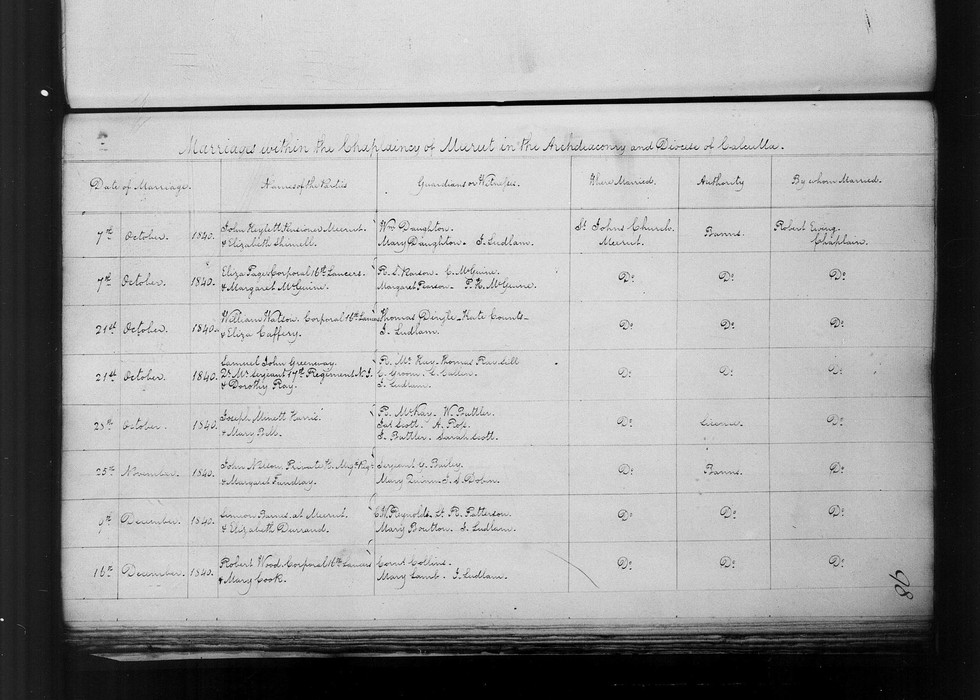 Marriages within the Chaplaincy of Meerut in the Archdeaconry and Diocese of Calcutta.
Date of Marriage. Names of the Parties Guardians or Witnesses. Where Married. Authority By whom Married.
7th October. 1840. John Heylett Pensioner Meerut. Wm Daughton. St Johns Church. Banns. Robert Ewing.
& Elizabeth Shinell. Mary Daughton - J. Ludlam. Meerut. Chaplain.
7th October. 1840. Eliza Page Corporal 16th Lancers. R. S. Pearson - C. McGuine. Do Do Do
& Margaret McGuine. Margaret Pearson - P. H. McGuine.
21st October. 1840. William Watson Corporal 16th Lancers Thomas Dingle - Kate Counts - Do Do Do
& Eliza Caffery. J. Ludlam.
21st October. 1840. Samuel John Greenway R. Mc Kay - Thomas Do Do Do
Qr Mr Sergeant 17th Regiment N. I. C. Groom -
& Dorothy Ray. J. Ludlam.
28th October. 1840. Joseph Minett Harris R. McKay - W. Battler. Do License. Do
& Mary Bell. Jas Scott. A. Ross.
J. Battler. Sarah Scott.
25th November. 1840. John Nelson Private H. M. 9th Regt Sergeant G. Bailey. Do Banns. Do
& Margaret Fundlay. Mary Quinn - J. S. Dobin.
9th December. 1840. Simon Barnes at Meerut. C. W. Reynolds - Lt R. Patterson. Do Do Do
& Elizabeth Durrand. Mary Boulton J. Ludlam.
16th December. 1840. Robert Wood Corporal 16th Lancers Cornt Collins. Do Do Do
& Mary Cook. Mary Lamb - J. Ludlam.
98